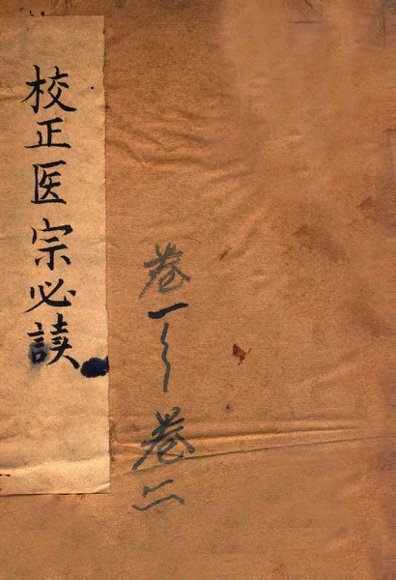 校正医宗必讀
卷一～卷二